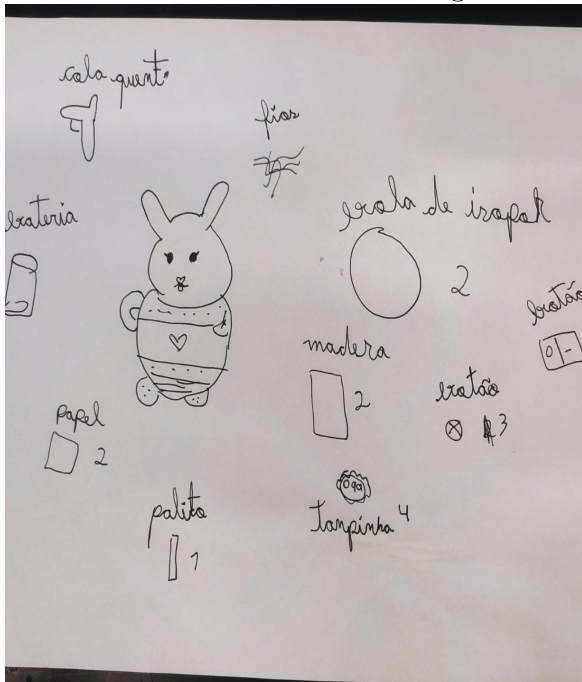 cola quent.
fios
bateria
bola de isopoR
2
botão
0 -
madera
2
botão
3
Papel
2
palito
1
tanpinha 4